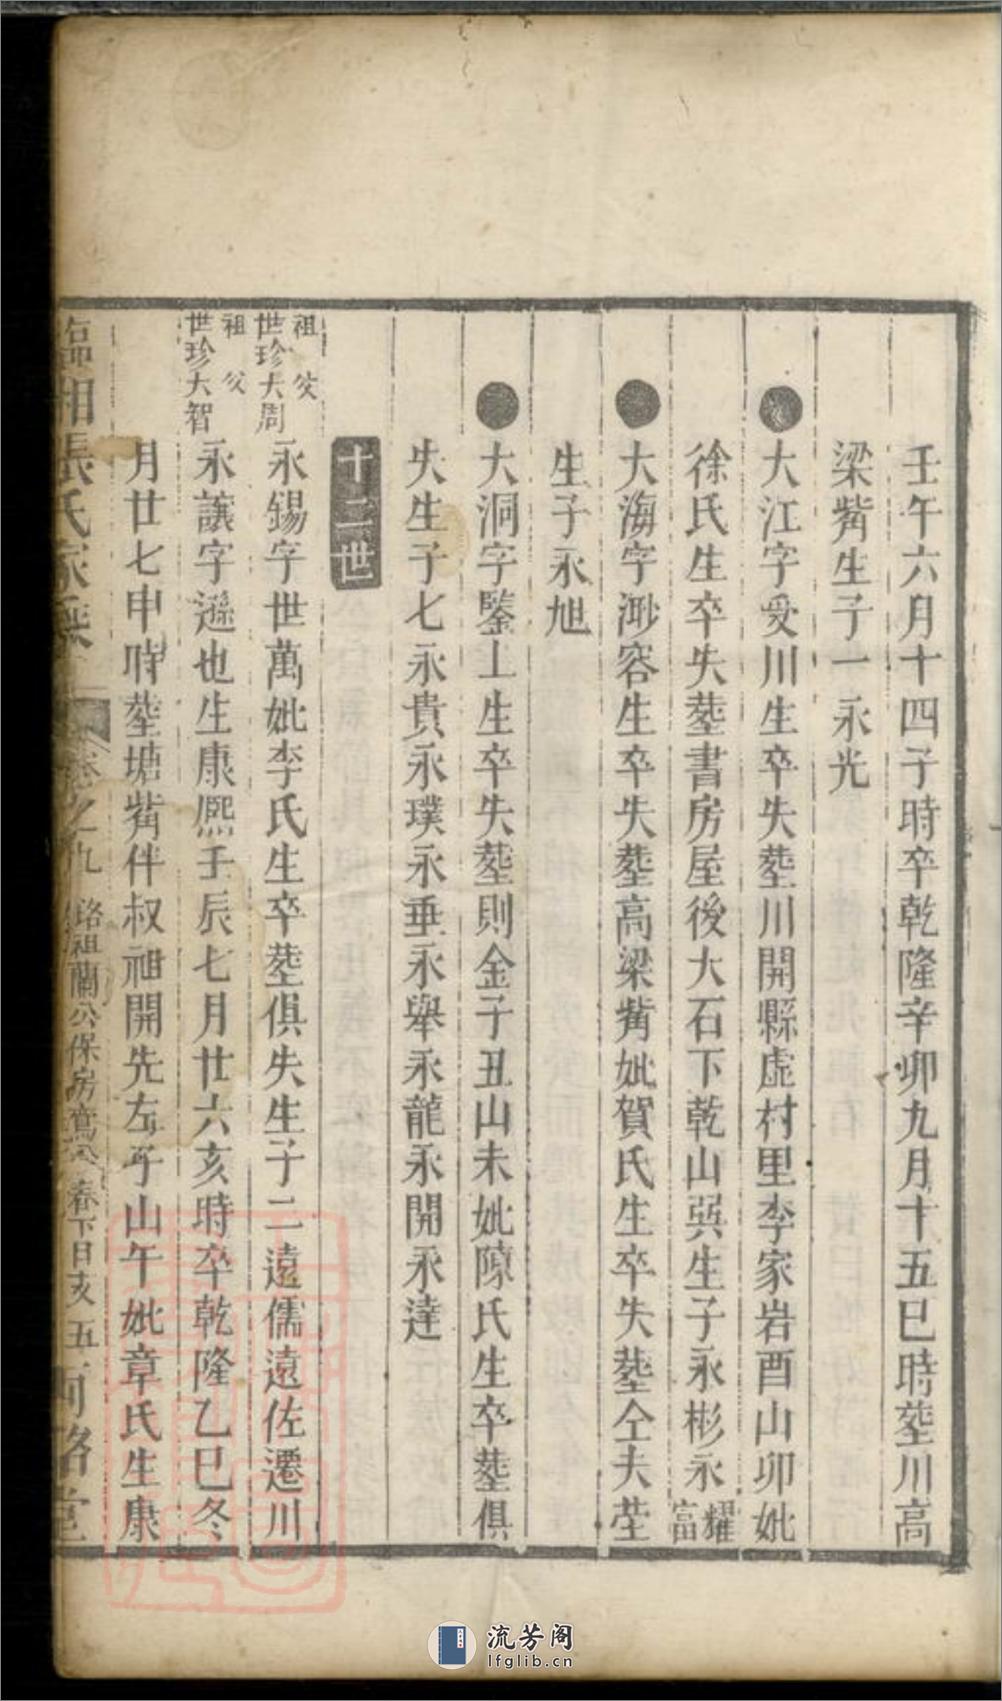 壬午六月十四子時卒乾隆辛卯九月十五巳時塟川高
梁觜生子一永光
大江字受川生卒失塟川開縣虛村里李家岩酉山卯妣
徐氏生卒失塟書房屋後大石下乾山巽生子永彬永耀富
大海字渺容生卒失塟高梁觜妣賀氏生卒失塟仝夫塋
生子永旭
大洞字鑒上生卒失塟則金子丑山未妣陳氏生卒塟俱
失生子七永貴永璞永垂永舉永龍永開永達
十二世
祖父世珍大周永錫字世萬妣李氏生卒塟俱失生子二遠儒遠佐遷川
祖父世珍大智永讓字遜也生康熙壬辰七月廿六亥時卒乾隆乙巳冬
月廿七申時塟塘觜伴叔祖開先左子山午妣章氏生康
臨湘張氏家乘 卷之九 珞祖蘭公保房 春下日亥 五 河洛堂
流芳阁
lfglib.cn